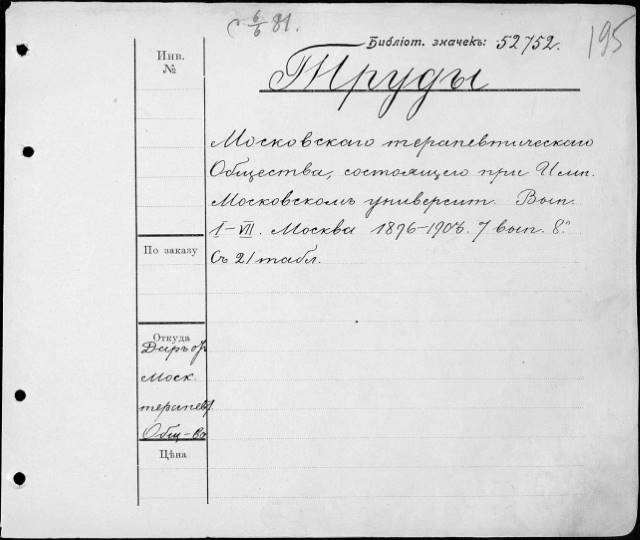 С 6/6 81.
195
Библіот. значекъ: 52752.
Труды
Инв.
№
Московскаго терапевтическаго
Общества, состоящего при Имп.
Московскомъ университ. Вып.
I–VII. Москва 1896–1903. 7 вып. 8°.
Съ 21 табл.
По заказу
Откуда
Даръ
Моск.
терапевт.
Общ-ва
Цѣна